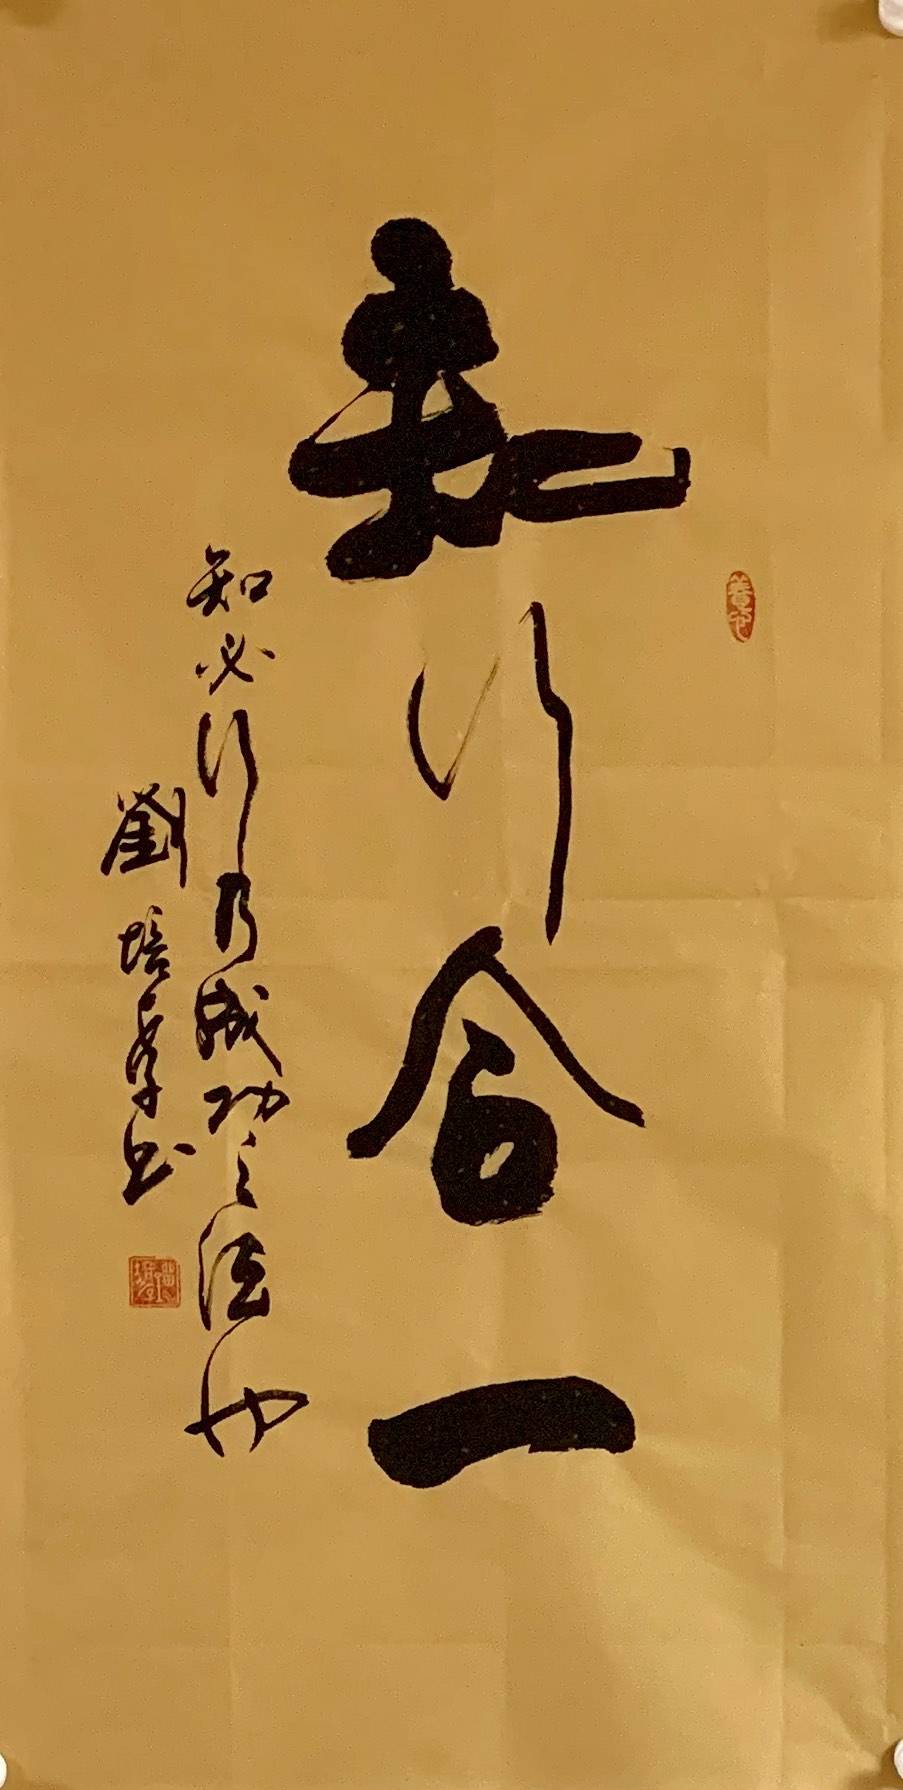 知行合一
知必行乃成功之法也
劉培孝书